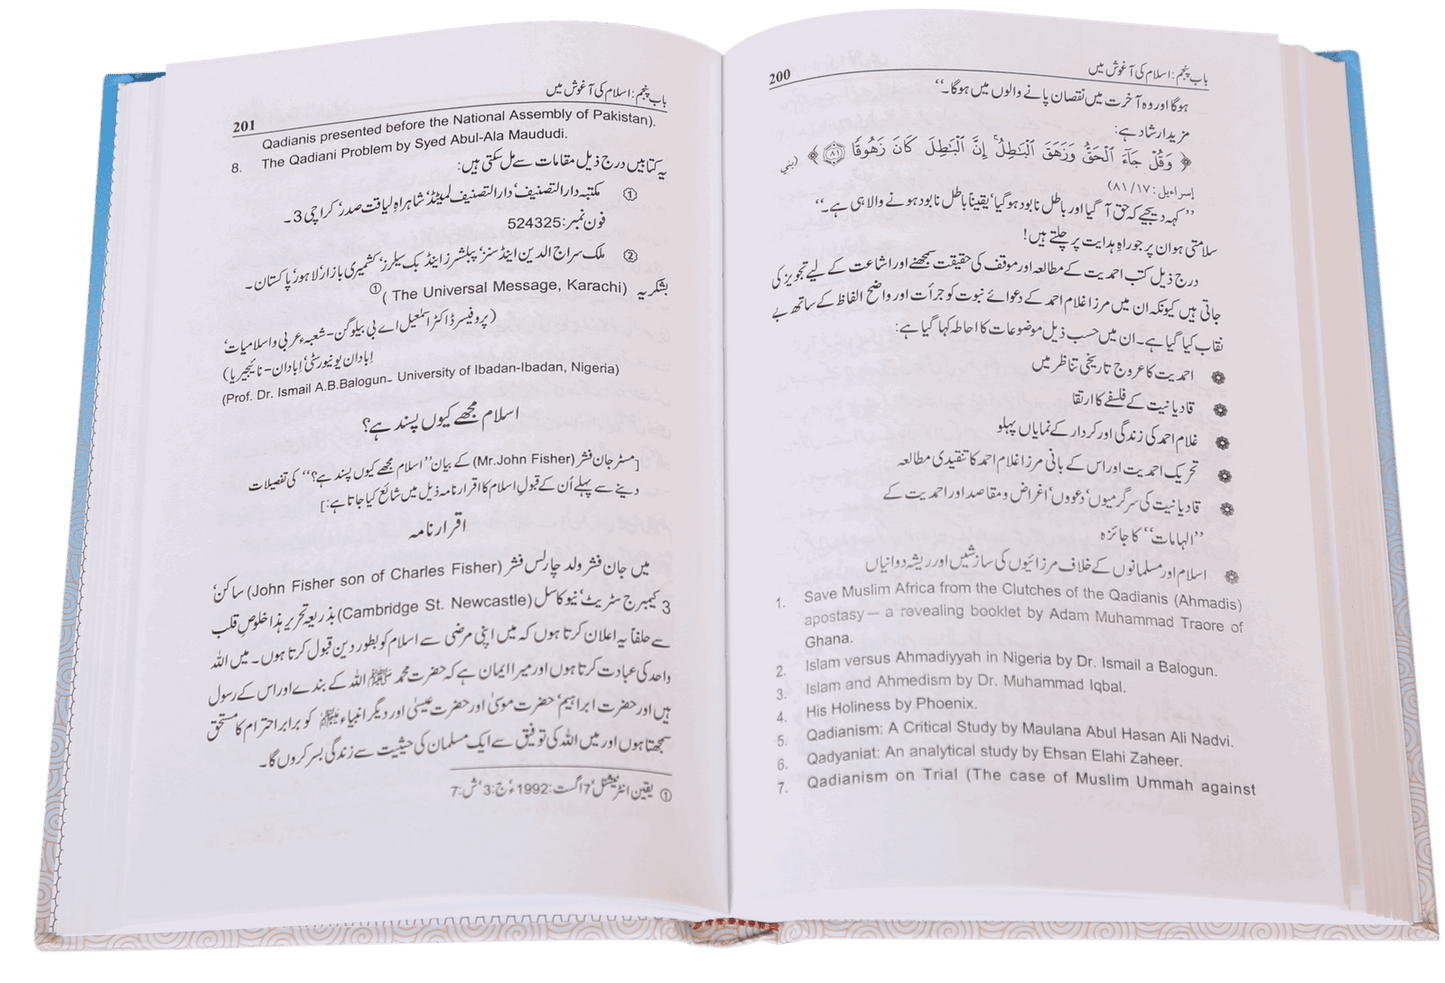 200 باب پنجم: اسلام کی آغوش میں
ہوگا اور وہ آخرت میں نقصان پانے والوں میں ہوگا۔‘‘
مزید ارشاد ہے:
﴿ وَقُلْ جَآءَ ٱلْحَقُّ وَزَهَقَ ٱلْبَـٰطِلُ ۚ إِنَّ ٱلْبَـٰطِلَ كَانَ زَهُوقًا ٨١ ﴾ (بني
إسراءيل: ١٧/ ٨١)
’’کہہ دیجیے کہ حق آ گیا اور باطل نابود ہوگیا‘ یقیناً باطل نابود ہونے والا ہی ہے۔‘‘
سلامتی ہو ان پر جو راہِ ہدایت پر چلتے ہیں!
درج ذیل کتب احمدیت کے مطالعہ اور موقف کی حقیقت سمجھنے اور اشاعت کے لیے تجویز کی
جاتی ہیں کیونکہ ان میں مرزا غلام احمد کے دعوائے نبوت کو جرأت اور واضح الفاظ کے ساتھ بے
نقاب کیا گیا ہے۔ ان میں حسب ذیل موضوعات کا احاطہ کیا گیا ہے:
احمدیت کا عروج تاریخی تناظر میں
قادیانیت کے فلسفے کا ارتقا
غلام احمد کی زندگی اور کردار کے نمایاں پہلو
تحریک احمدیت اور اس کے بانی مرزا غلام احمد کا تنقیدی مطالعہ
قادیانیت کی سرگرمیوں‘ دعووں‘ اغراض و مقاصد اور احمدیت کے
’’الہامات‘‘ کا جائزہ
اسلام اور مسلمانوں کے خلاف مرزائیوں کی سازشیں اور ریشہ دوانیاں
1. Save Muslim Africa from the Clutches of the Qadianis (Ahmadis)
apostasy — a revealing booklet by Adam Muhammad Traore of
Ghana.
2. Islam versus Ahmadiyyah in Nigeria by Dr. Ismail a Balogun.
3. Islam and Ahmedism by Dr. Muhammad Iqbal.
4. His Holiness by Phoenix.
5. Qadianism: A Critical Study by Maulana Abul Hasan Ali Nadvi.
6. Qadyaniat: An analytical study by Ehsan Elahi Zaheer.
7. Qadianism on Trial (The case of Muslim Ummah against
201 باب پنجم: اسلام کی آغوش میں
Qadianis presented before the National Assembly of Pakistan).
8. The Qadiani Problem by Syed Abul-Ala Maududi.
یہ کتابیں درج ذیل مقامات سے مل سکتی ہیں:
① مکتبہ دارالتصنیف‘ دارالتصنیف لمیٹڈ‘ شاہراہِ لیاقت صدر‘ کراچی 3۔
فون نمبر: 524325
② ملک سراج الدین اینڈ سنز‘ پبلشرز اینڈ بک سیلرز‘ کشمیری بازار‘ لاہور‘ پاکستان۔
بشکریہ (The Universal Message, Karachi) ①
(پروفیسر ڈاکٹر اسمٰعیل اے بی بیلوگن- شعبۂ عربی و اسلامیات‘
اِبادان یونیورسٹی‘ اِبادان- نائیجیریا)
(Prof. Dr. Ismail A.B.Balogun- University of Ibadan-Ibadan, Nigeria)
اسلام مجھے کیوں پسند ہے؟
[مسٹر جان فشر (Mr.John Fisher) کے بیان ’’اسلام مجھے کیوں پسند ہے؟‘‘ کی تفصیلات
دینے سے پہلے اُن کے قبولِ اسلام کا اقرار نامہ ذیل میں شائع کیا جاتا ہے:]
اقرار نامہ
میں جان فشر ولد چارلس فشر (John Fisher son of Charles Fisher) ساکن‘
3 کیمبرج سٹریٹ‘ نیوکاسل (Cambridge St. Newcastle) بذریعہ تحریر ہذا خلوصِ قلب
سے حلفاً یہ اعلان کرتا ہوں کہ میں اپنی مرضی سے اسلام کو بطور دین قبول کرتا ہوں۔ میں اللہ
واحد کی عبادت کرتا ہوں اور میرا ایمان ہے کہ حضرت محمد ﷺ اللہ کے بندے اور اس کے رسول
ہیں اور حضرت ابراہیم‘ حضرت موسیٰ اور حضرت عیسیٰ اور دیگر انبیاء کو برابر احترام کا مستحق
سمجھتا ہوں اور میں اللہ کی توفیق سے ایک مسلمان کی حیثیت سے زندگی بسر کروں گا۔
① یقین انٹرنیشنل‘ 7 اگست: 1992ء‘ ج: 3‘ ش: 7